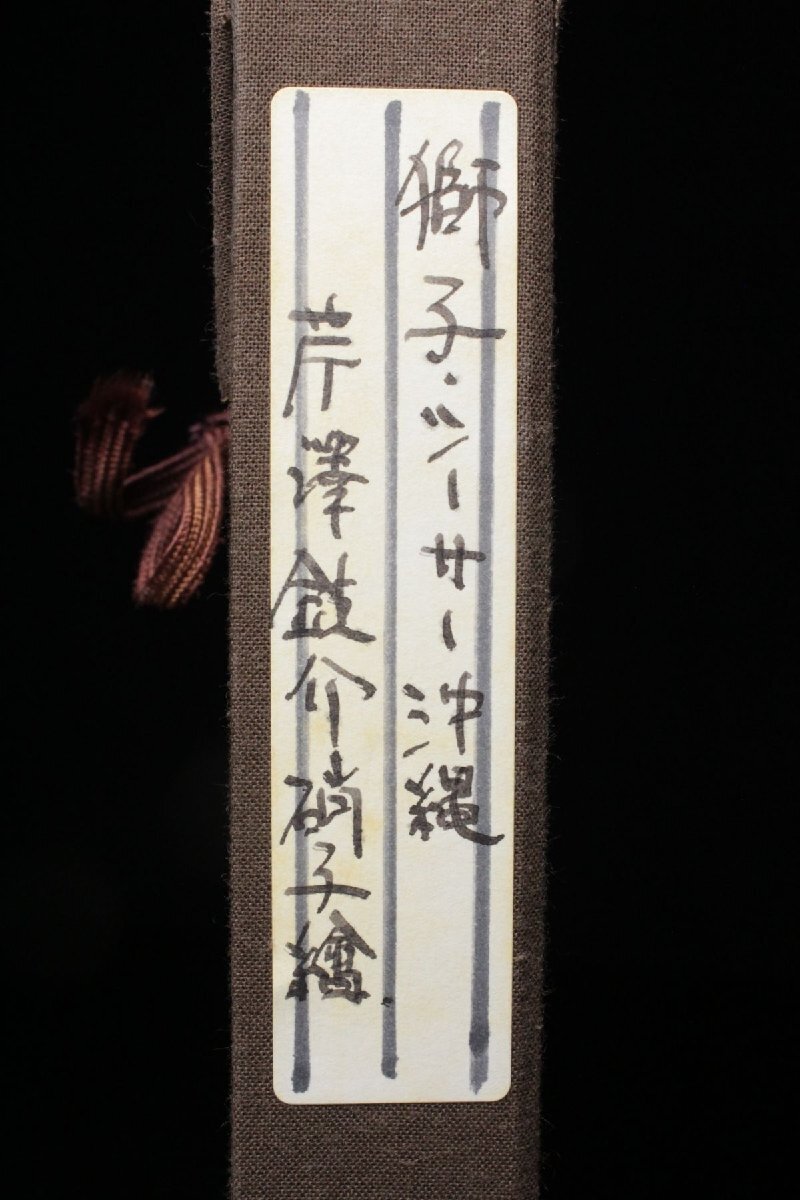 獅子・シーサー沖縄
芹澤銈介硝子繪.